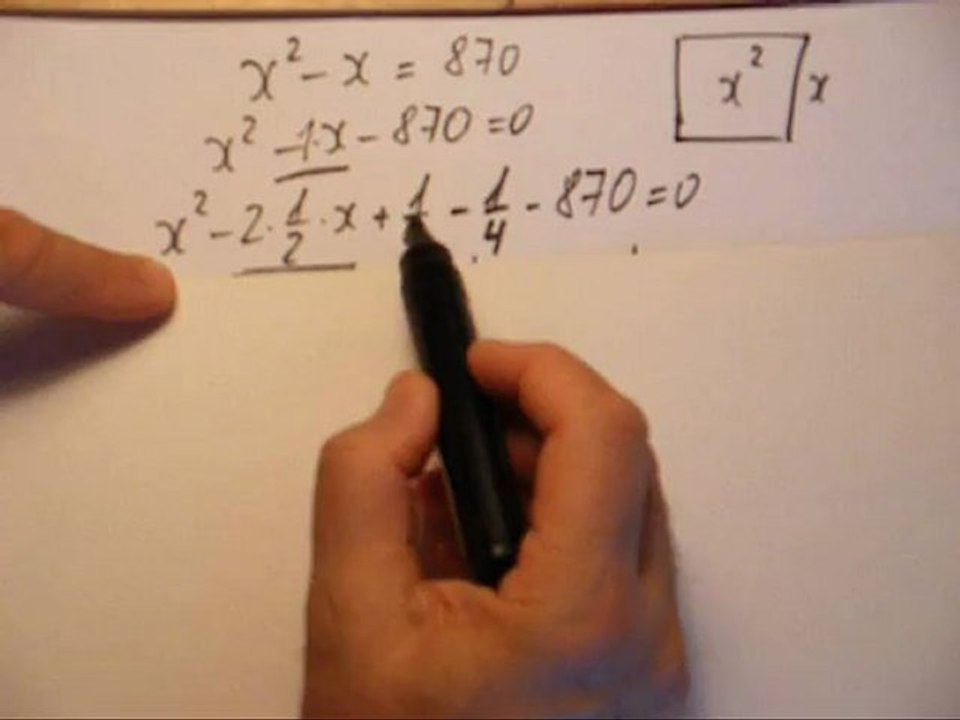 x² - x = 870
x² - 1·x - 870 = 0
x² - 2·1/2·x + 1 - 1/4 - 870 = 0
x² x